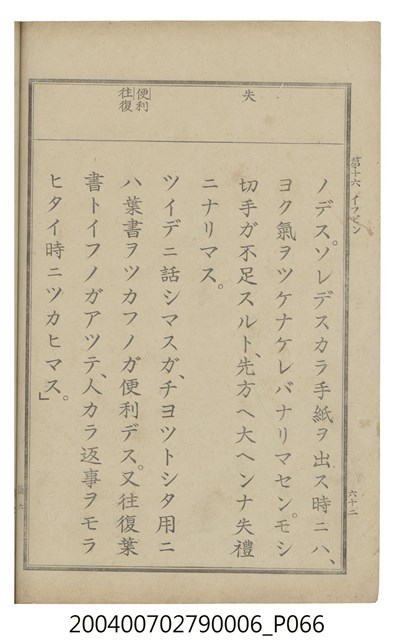 第十六 イフビン
六十二
失
便利
往復
ノデス。ソレデスカラ手紙ヲ出ス時ニハ、
ヨク氣ヲツケナケレバナリマセン。モシ
切手ガ不足スルト、先方ヘ大ヘンナ失禮
ニナリマス。
ツイデニ話シマスガ、チヨツトシタ用ニ
ハ葉書ヲツカフノガ便利デス。又往復葉
書トイフノガアツテ、人カラ返事ヲモラ
ヒタイ時ニツカヒマス。」
200400702790006_P066